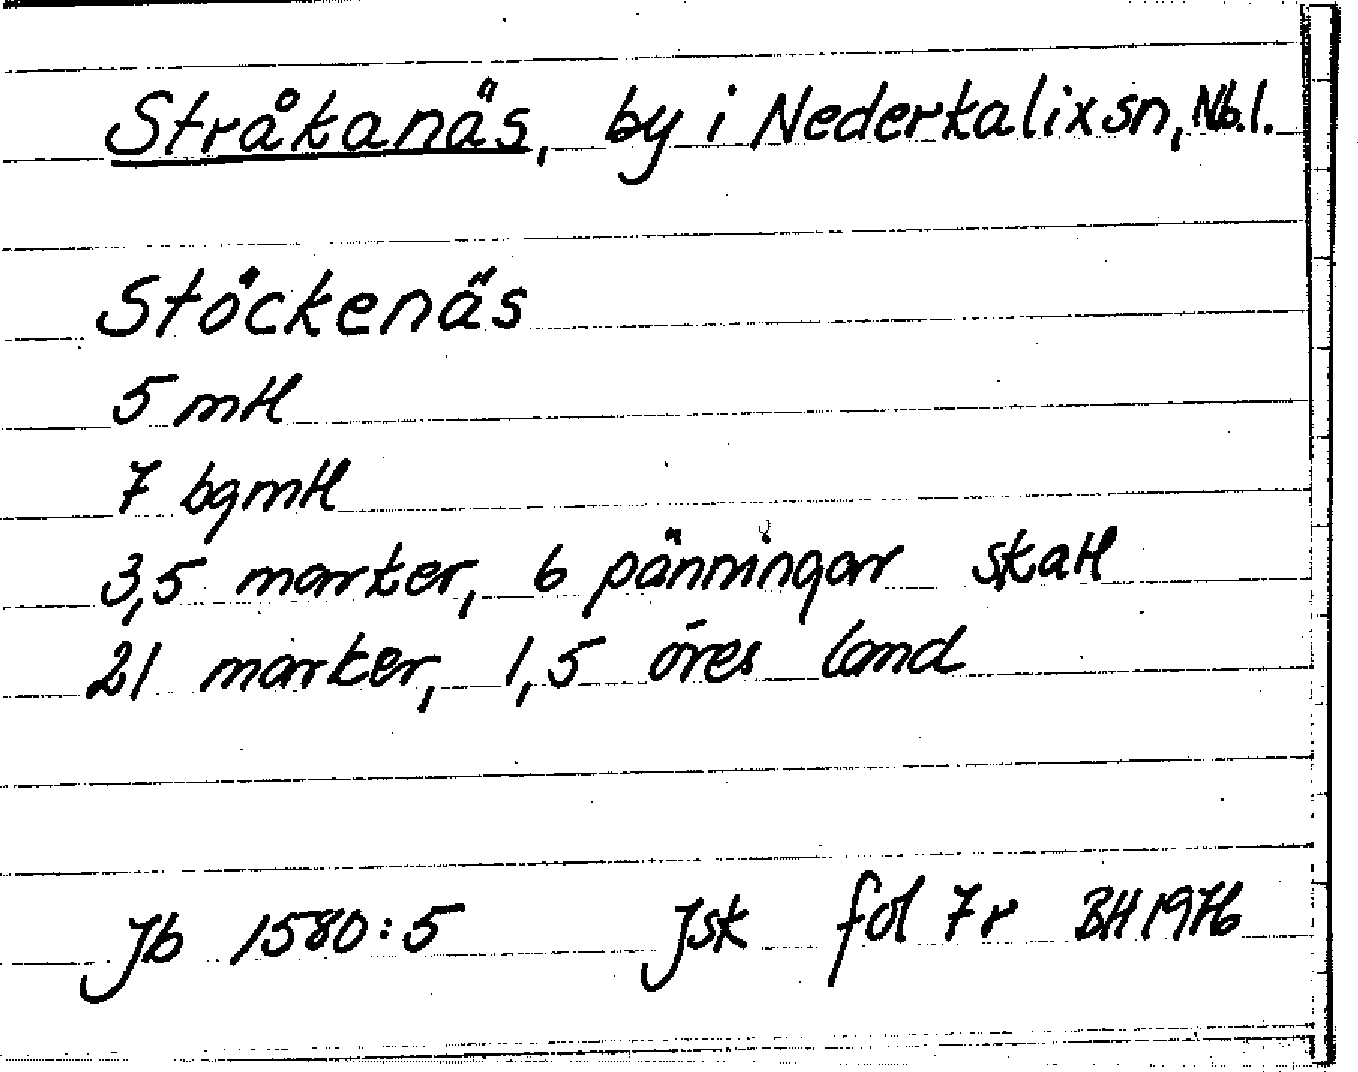 Stråkanäs, by i Nederkalix sn, Nb.l.
Stöckenäs
5 mtl
7 bgmtl
3,5 marker, 6 pänningar skatt
21 marker, 1,5 öres land
Jb 1580:5 Jsk fol 7r BH 1976